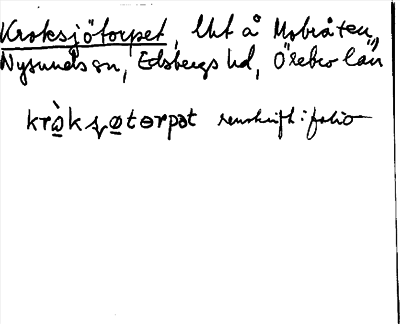 Kroksjötorpet, lht å Mobråten,
Nysunds sn, Edsbergs hd, Örebro län
krò̲kʂø̲tɵrpət renskrift i folio